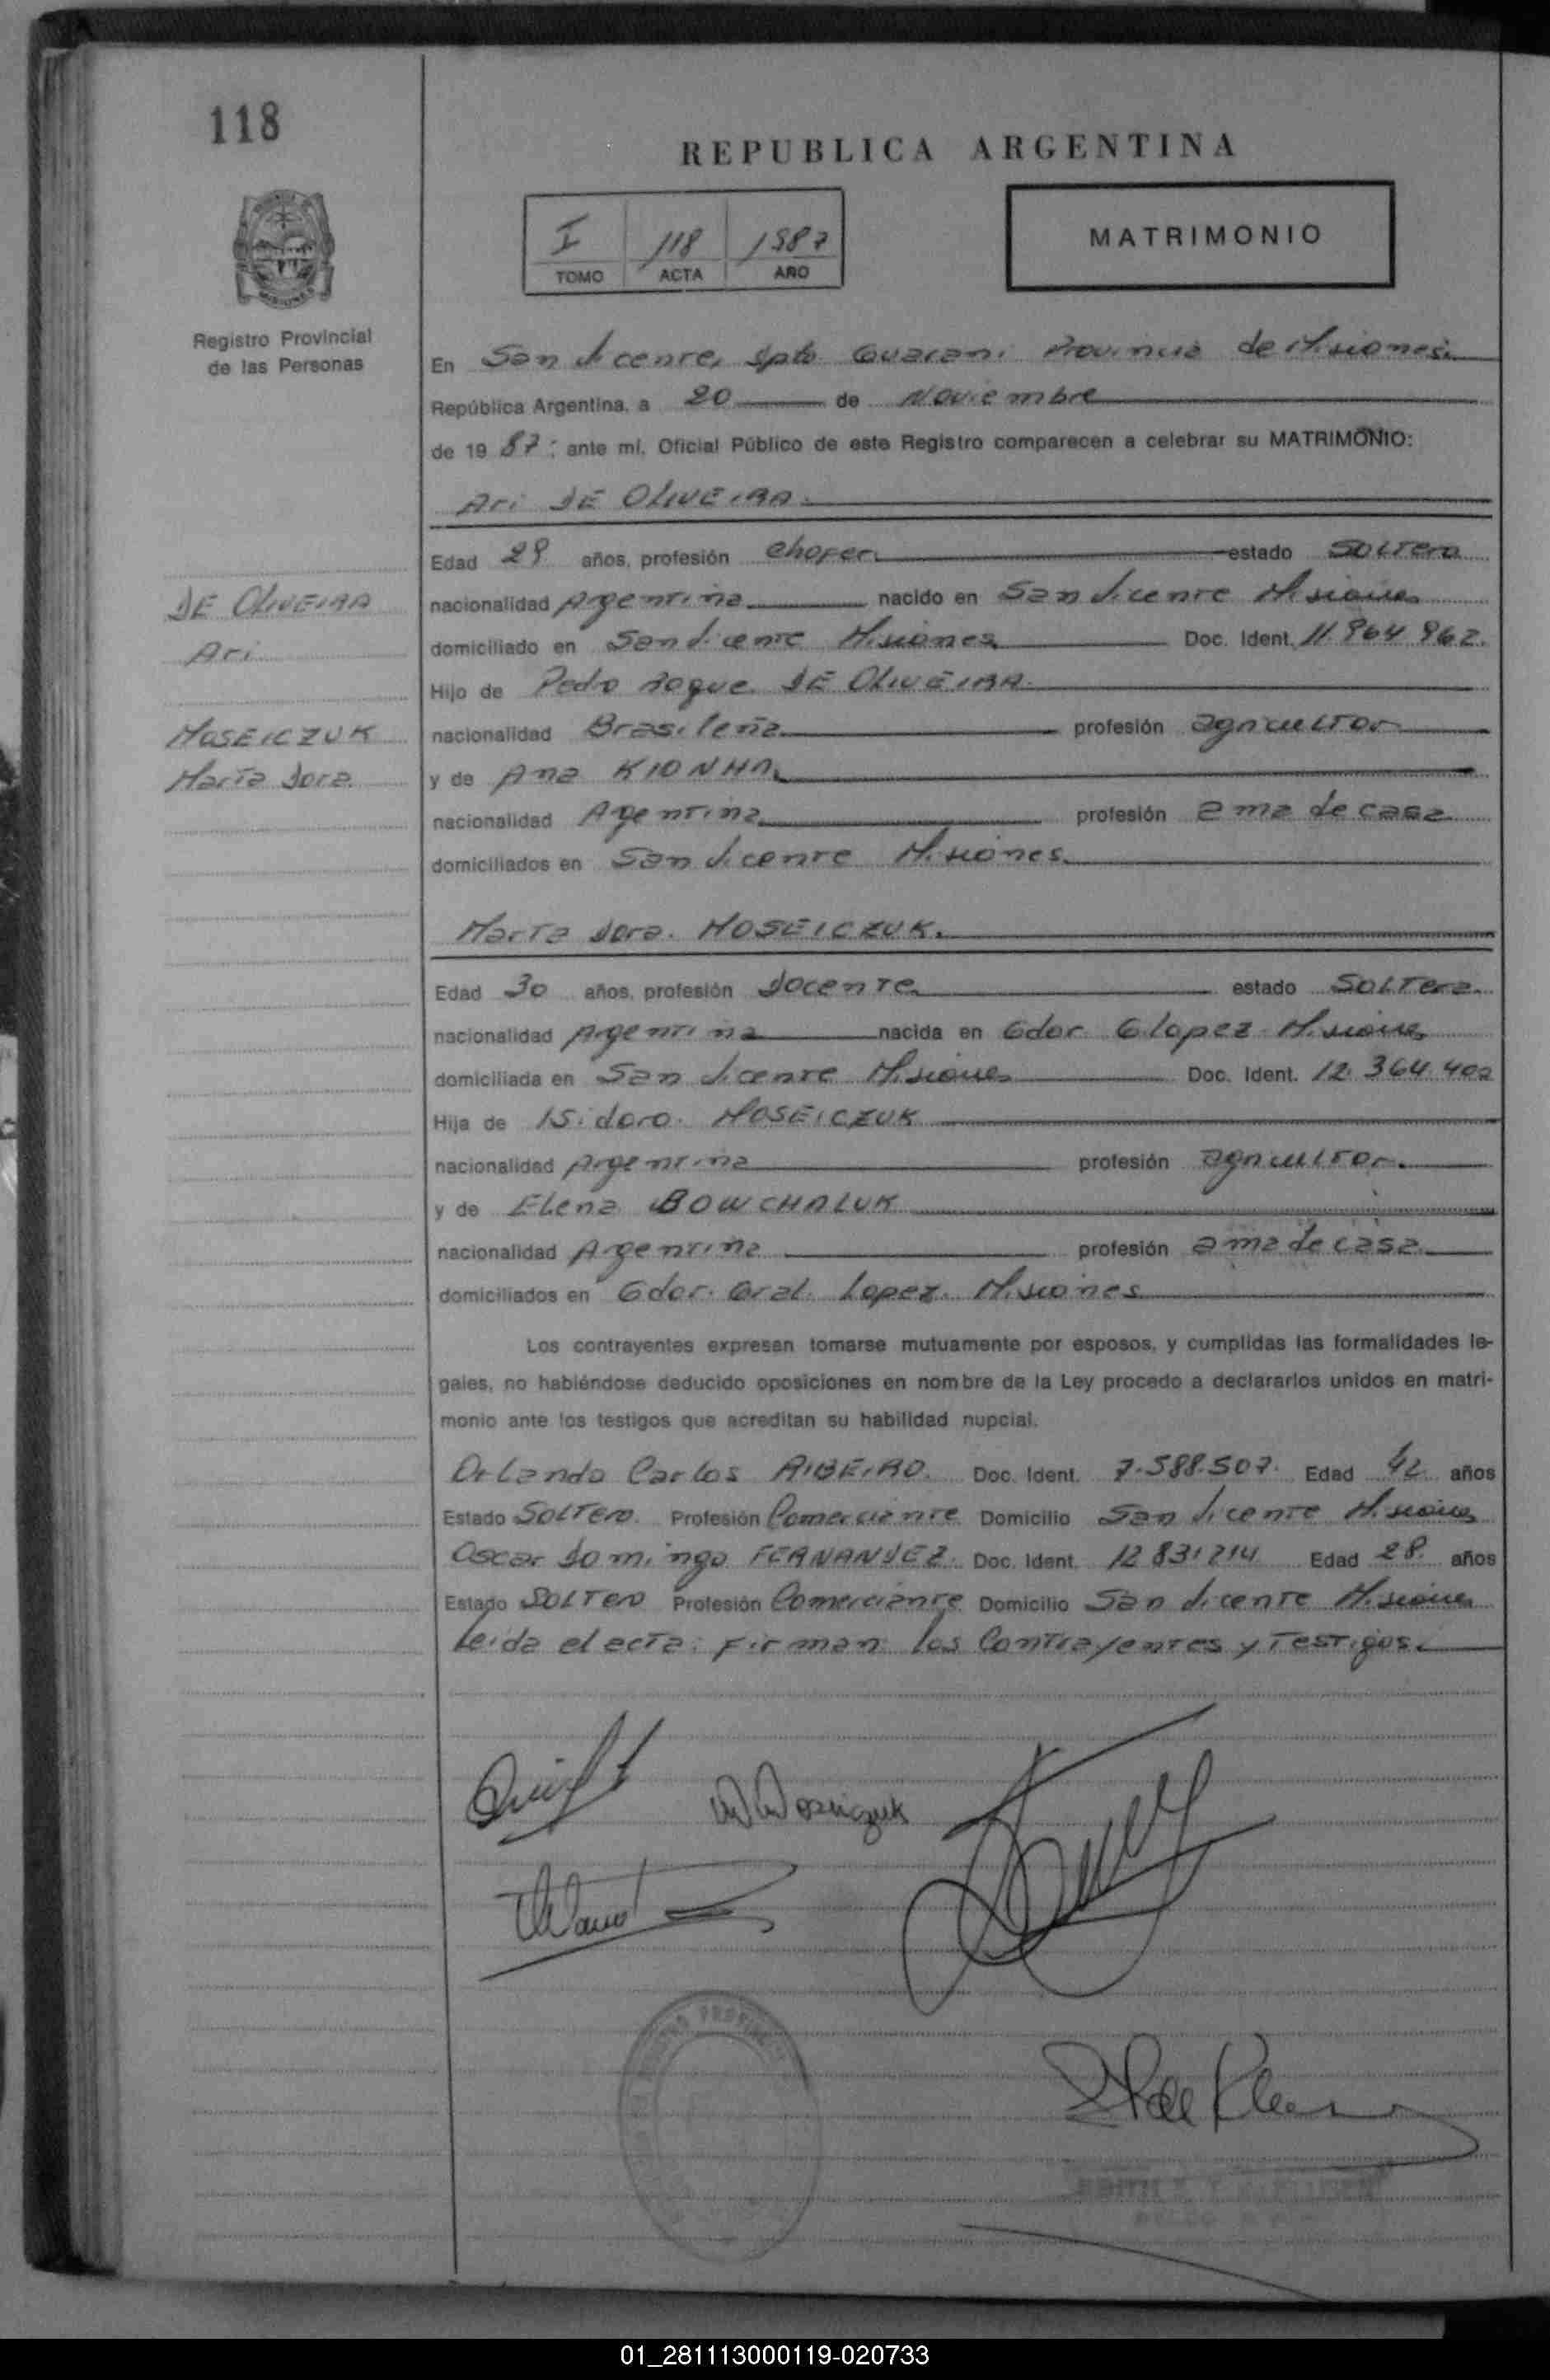 118
REPUBLICA ARGENTINA
I 118 1987
TOMO ACTA AÑO
MATRIMONIO
MISIONES
Registro Provincial
de las Personas
En San Vicente, Dpto. Guarani Provincia de Misiones.
República Argentina, a 20 de Noviembre
de 19 87; ante mí, Oficial Público de este Registro comparecen a celebrar su MATRIMONIO:
Ari DE OLIVEIRA.
Edad 29 años, profesión chofer. estado Soltero
nacionalidad Argentina nacido en San Vicente Misiones
domiciliado en San Vicente Misiones Doc. Ident. 11.964.962.
Hijo de Pedro Roque DE OLIVEIRA.
nacionalidad Brasileña profesión agricultor
y de Ana KIONHA.
nacionalidad Argentina profesión ama de casa
domiciliados en San Vicente Misiones.
DE OLIVEIRA
Ari
MOSEICZUK
Marta Dora
Marta Dora. MOSEICZUK.
Edad 30 años, profesión Docente estado Soltera
nacionalidad Argentina nacida en Gdor. G. Lopez Misiones
domiciliada en San Vicente Misiones Doc. Ident. 12.364.402
Hija de Isidoro. MOSEICZUK
nacionalidad Argentina profesión agricultor.
y de Elena BOWCHALUK
nacionalidad Argentina profesión ama de casa
domiciliados en Gdor. Gral. Lopez. Misiones
Los contrayentes expresan tomarse mutuamente por esposos, y cumplidas las formalidades le-
gales, no habiéndose deducido oposiciones en nombre de la Ley procedo a declararlos unidos en matri-
monio ante los testigos que acreditan su habilidad nupcial.
Orlando Carlos RIBEIRO. Doc. Ident. 7.588.507. Edad 42 años
Estado Soltero. Profesión Comerciante Domicilio San Vicente Misiones
Oscar Domingo FERNANDEZ. Doc. Ident. 12 831214 Edad 28. años
Estado Soltero Profesión Comerciante Domicilio San Vicente Misiones
Leida el acta; firman los Contrayentes y Testigos.
01_281113000119-020733